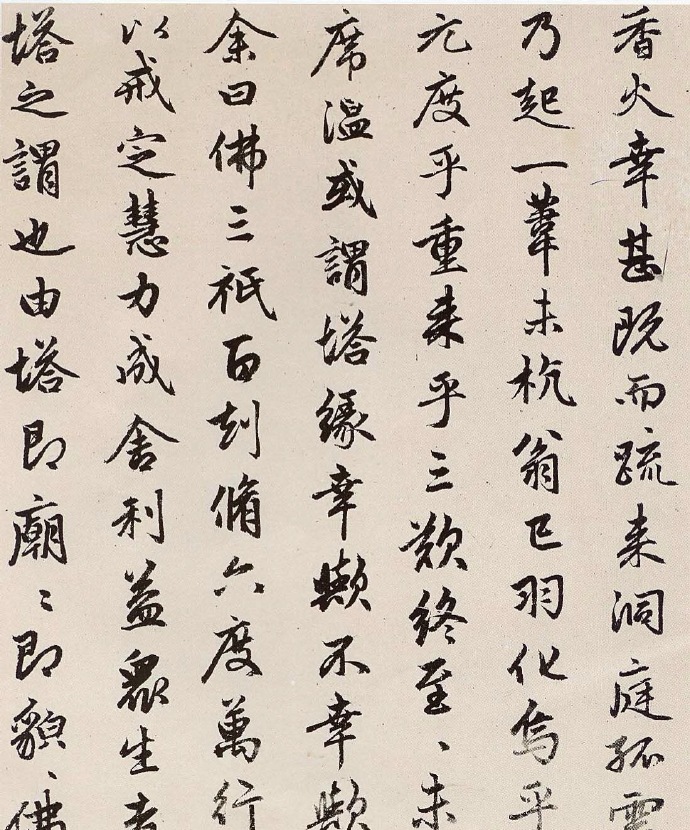 香火幸甚既而疏来洞庭孤雲
乃起一葦未杭翁已羽化烏乎
元度乎重来乎三歎終至、未
席溫或謂塔緣幸歟不幸歟
余曰佛三祇百刼脩六度萬行
以戒定慧力成舍利益眾生者
塔之謂也由塔即廟〻即貌、佛